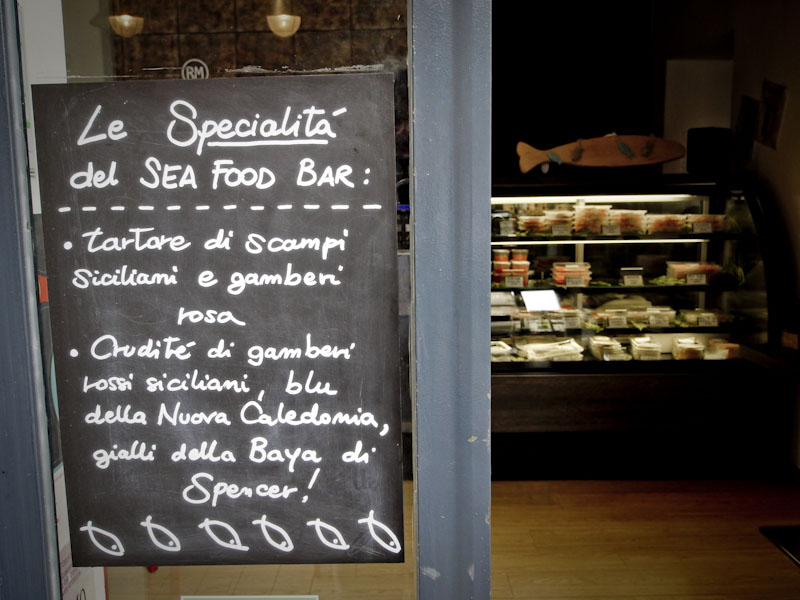 RM
Le Specialità
del SEA FOOD BAR:
• tartare di scampi
siciliani e gamberi
rosa
• Crudité di gamberi
rossi siciliani, blu
della Nuova Caledonia,
gialli della Baya di
Spencer!